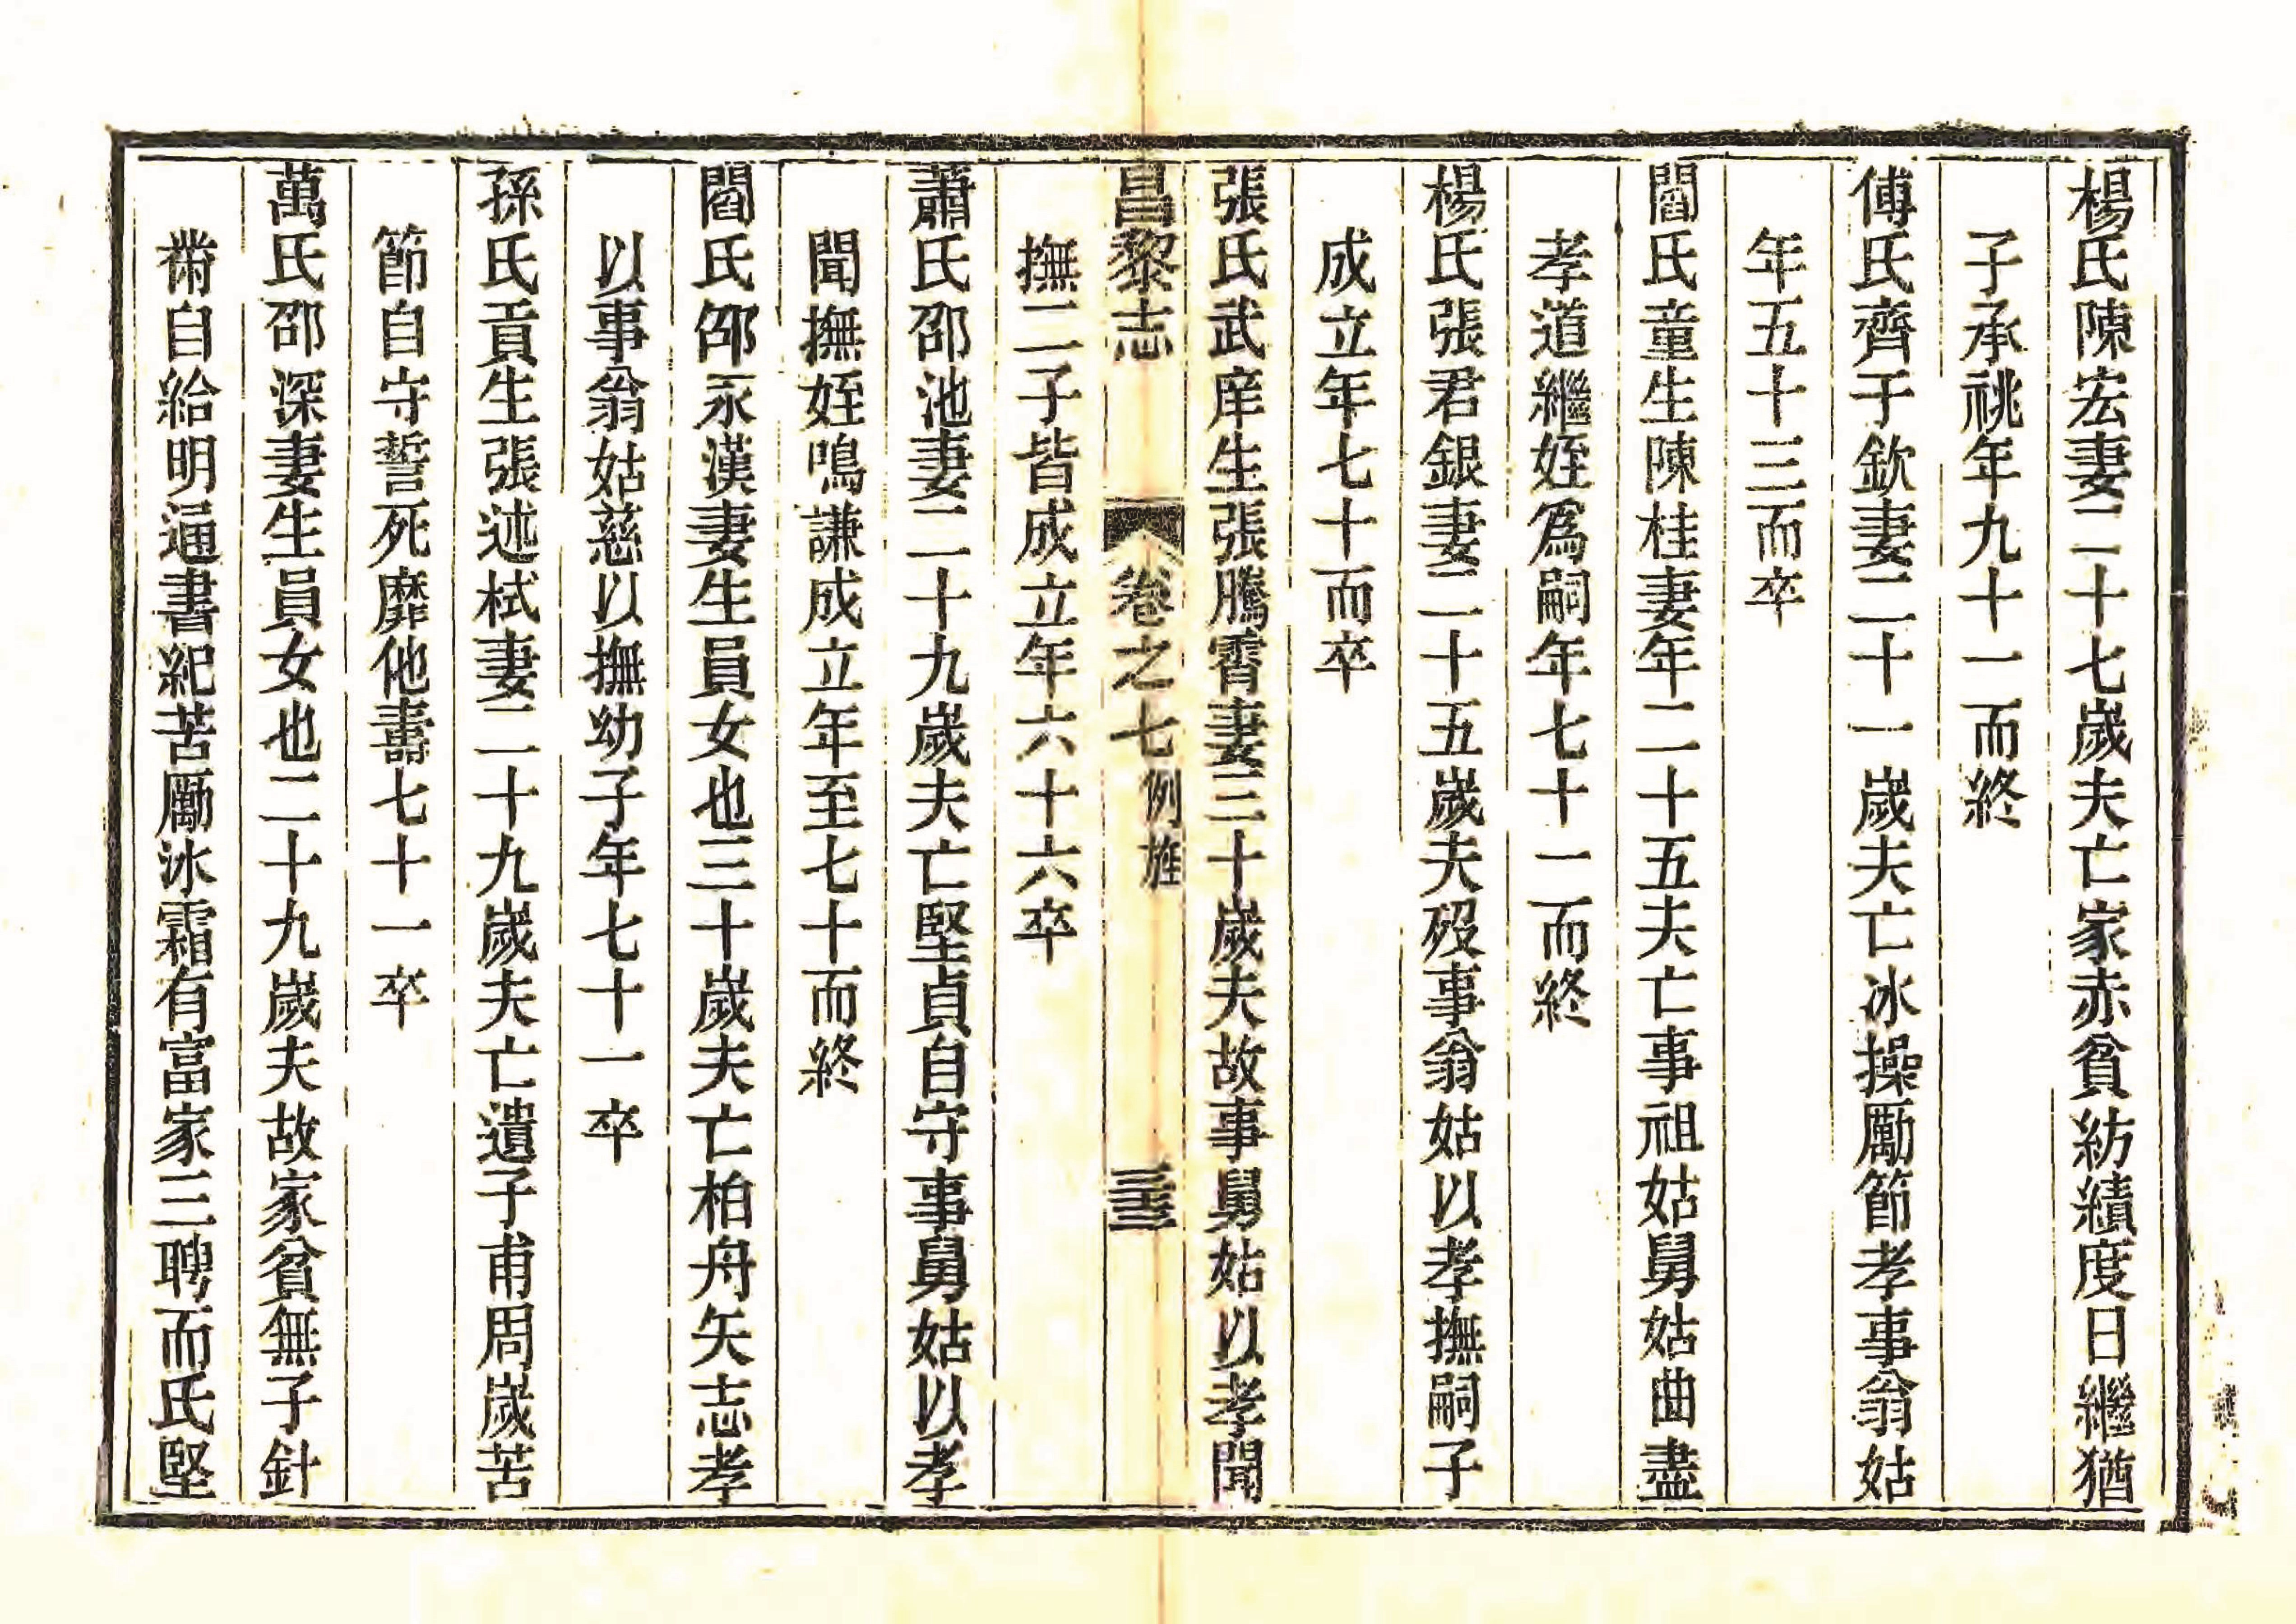 楊氏陳宏妻二十七歲夫亡家赤貧紡績度日繼猶
子承祧年九十一而終
傅氏齊于欽妻二十一歲夫亡冰操厲節孝事翁姑
年五十三而卒
閻氏童生陳桂妻年二十五夫亡事祖姑舅姑曲盡
孝道繼姪爲嗣年七十一而終
楊氏張君銀妻二十五歲夫歿事翁姑以孝撫嗣子
成立年七十而卒
張氏武庠生張騰霄妻三十歲夫故事舅姑以孝聞
昌黎志 卷之七 例旌 三十三
撫二子皆成立年六十六卒
蕭氏邵池妻二十九歲夫亡堅貞自守事舅姑以孝
聞撫姪鳴謙成立年至七十而終
閻氏邵永漢妻生員女也三十歲夫亡柏舟矢志孝
以事翁姑慈以撫幼子年七十一卒
孫氏貢生張述栻妻二十九歲夫亡遺子甫周歲苦
節自守誓死靡他壽七十一卒
萬氏邵深妻生員女也二十九歲夫故家貧無子針
黹自給明通書紀苦厲冰霜有富家三聘而氏堅